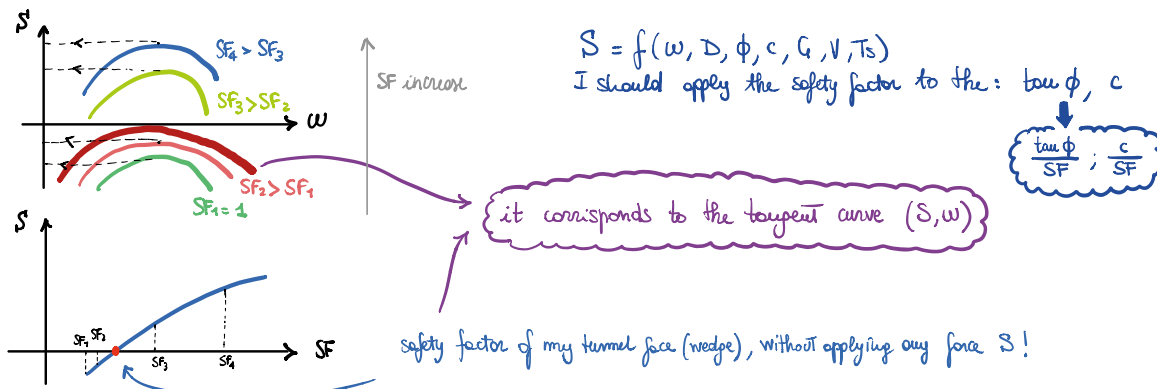 S
SF₄ > SF₃
SF increase
SF₃ > SF₂
ω
SF₂ > SF₁
SF₁ = 1
S = f(ω, D, ϕ, c, G, V, Ts)
I should apply the safety factor to the: tan ϕ, c
tan ϕ / SF ; c / SF
it corrisponds to the tangent curve (S, ω)
S
SF₁ SF₂
SF₃
SF₄
SF
safety factor of my tunnel face (wedge), without applying any force S!